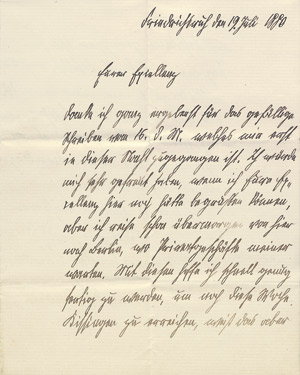 Friedrichsruh den 19. Juli 1890
Eurer Exzellenz
danke ich ganz ergebenst für das gefällige
Schreiben vom 16. d. M. welches mir erst
in dieser Nacht zugegangen ist. Ich würde
mich sehr gefreut haben, wenn ich Eure Ex-
zellenz hier noch hätte begrüßen können,
aber ich reise schon übermorgen von hier
nach Berlin, wo Privatgeschäfte meiner
warten. Mit diesen hoffe ich schnell genug
fertig zu werden, um noch diese Woche
Kissingen zu erreichen, weiß das aber